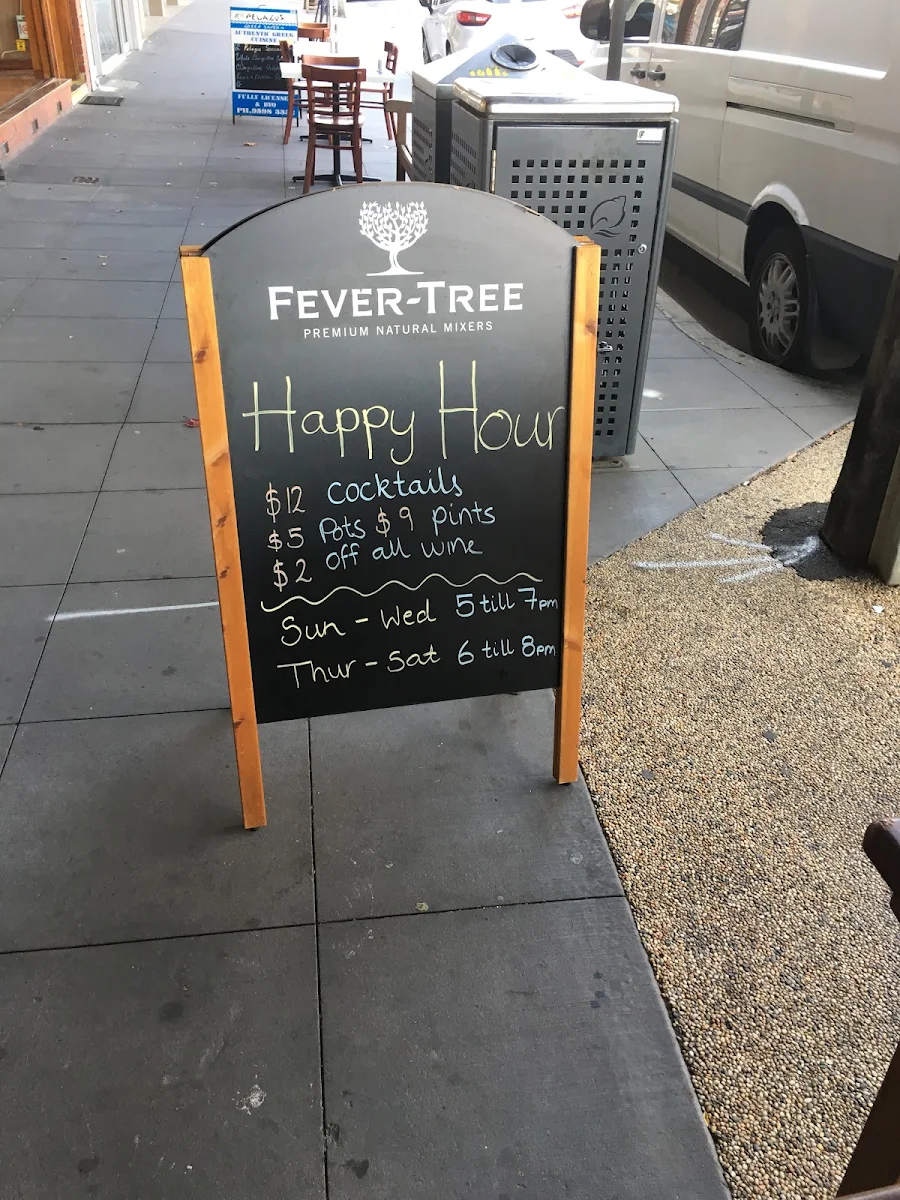 PELAGUS
AUTHENTIC GREEK
CUISINE
FULLY LICENSE
& BYO
FEVER-TREE
PREMIUM NATURAL MIXERS
Happy Hour
$12 Cocktails
$5 Pots $9 pints
$2 off all wine
Sun - Wed 5 till 7pm
Thur - Sat 6 till 8pm